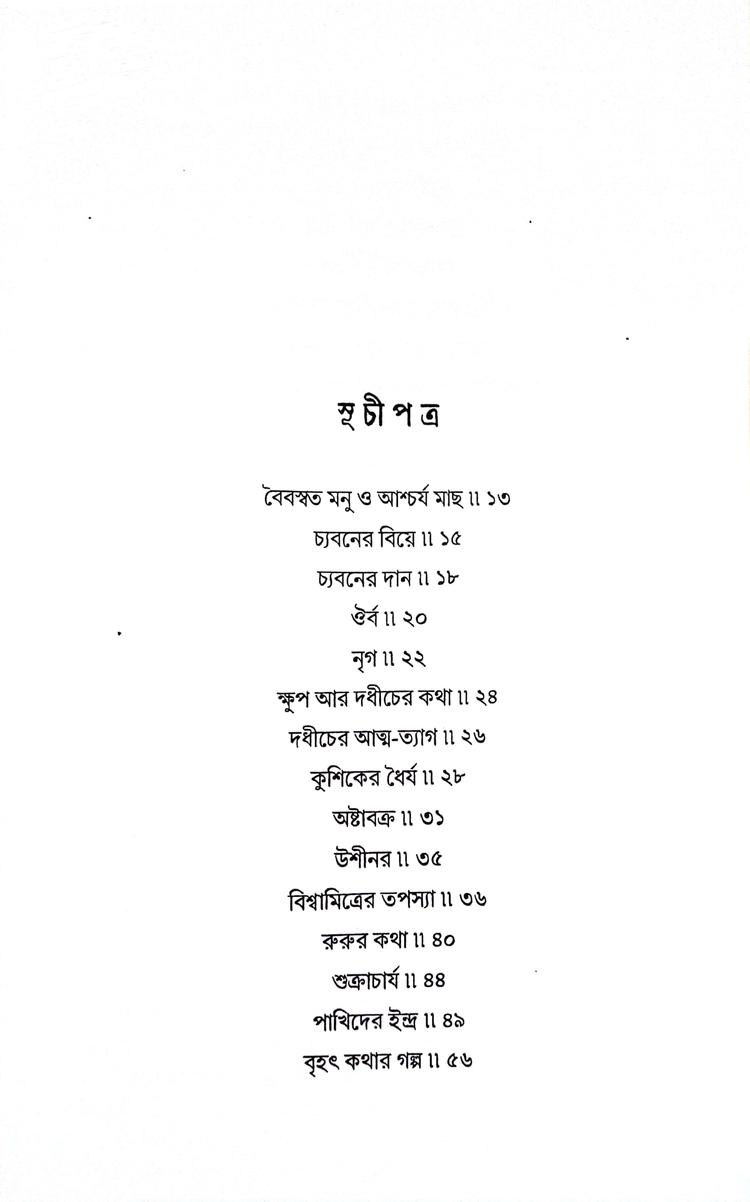 সূচীপত্র
বৈবস্বত মনু ও আশ্চর্য মাছ ৷৷ ১৩
চ্যবনের বিয়ে ৷৷ ১৫
চ্যবনের দান ৷৷ ১৮
ঔর্ব ৷৷ ২০
নৃগ ৷৷ ২২
ক্ষুপ আর দধীচের কথা ৷৷ ২৪
দধীচের আত্ম-ত্যাগ ৷৷ ২৬
কুশিকের ধৈর্য ৷৷ ২৮
অষ্টাবক্র ৷৷ ৩১
উশীনর ৷৷ ৩৫
বিশ্বামিত্রের তপস্যা ৷৷ ৩৬
রুরুর কথা ৷৷ ৪০
শুক্রাচার্য ৷৷ ৪৪
পাখিদের ইন্দ্র ৷৷ ৪৯
বৃহৎ কথার গল্প ৷৷ ৫৬